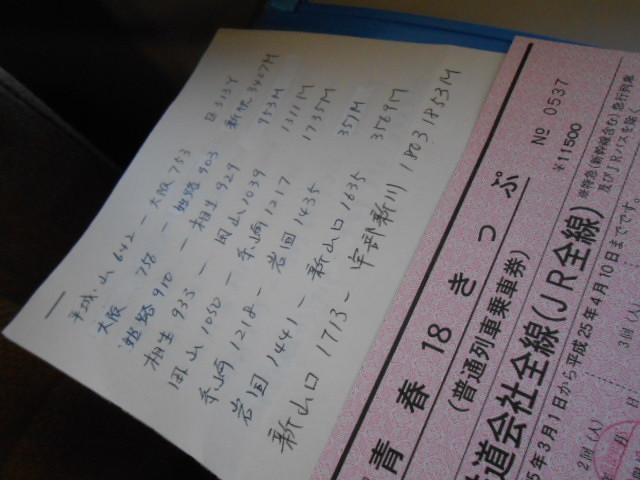 平城山 642 - 大阪 753 区3313Y
大阪 758 - 姫路 903 新快 3407M
姫路 910 - 相生 929 953M
相生 933 - 岡山 1039 1311M
岡山 1050 - 糸崎 1217 1735M
糸崎 1218 - 岩国 1435 351M
岩国 1441 - 新山口 1635 3569M
新山口 1713 - 宇部新川 1803 1853M
青春18きっぷ
(普通列車乗車券)
№ 0537
¥11500
道会社全線(JR全線)
※特急(新幹線含む)急行列車
及びJRバスを除
5年3月1日から平成25年4月10日までです。
2回(人)
3回(人)
月 日